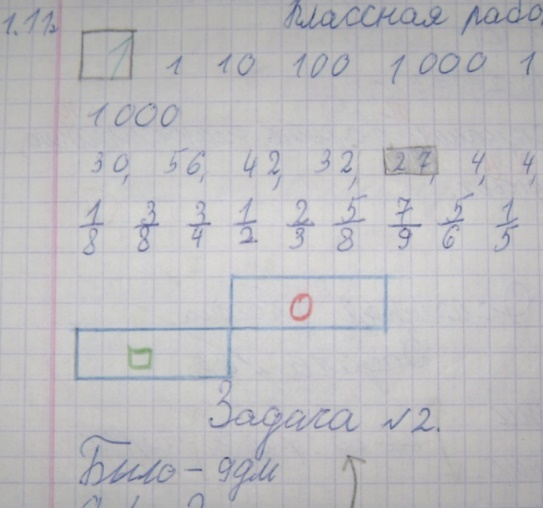 1.11г. Классная рабо
1 1 10 100 1 000 1
1 000
30, 56, 42, 32, 27, 4, 4,
1/8 3/8 3/4 1/2 2/3 5/8 7/9 5/6 1/5
Задача №2.
Было - 9дм